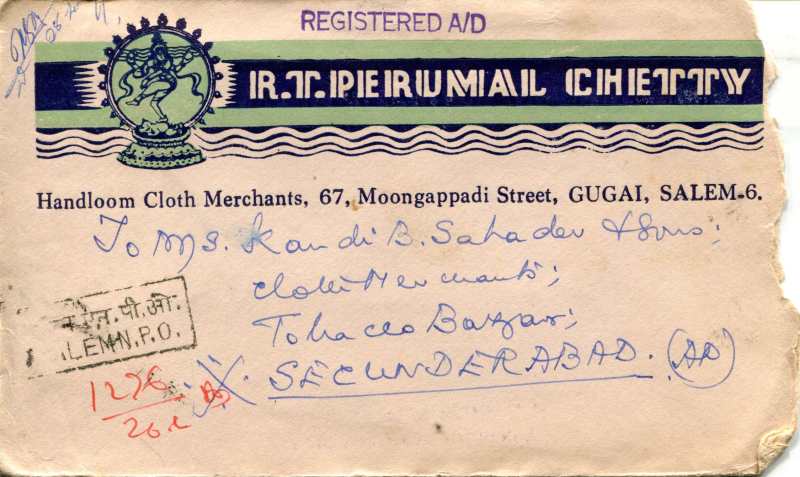 REGISTERED A/D
R.T.PERUMAL CHETTY
Handloom Cloth Merchants, 67, Moongappadi Street, GUGAI, SALEM-6.
To M/S. Kandi B. Sahadev & Sons;
Cloth Merchants;
Tobacco Bazaar;
SECUNDERABAD. (AP)
एन.पी.ओ.
ALEM N.P.O.
1276